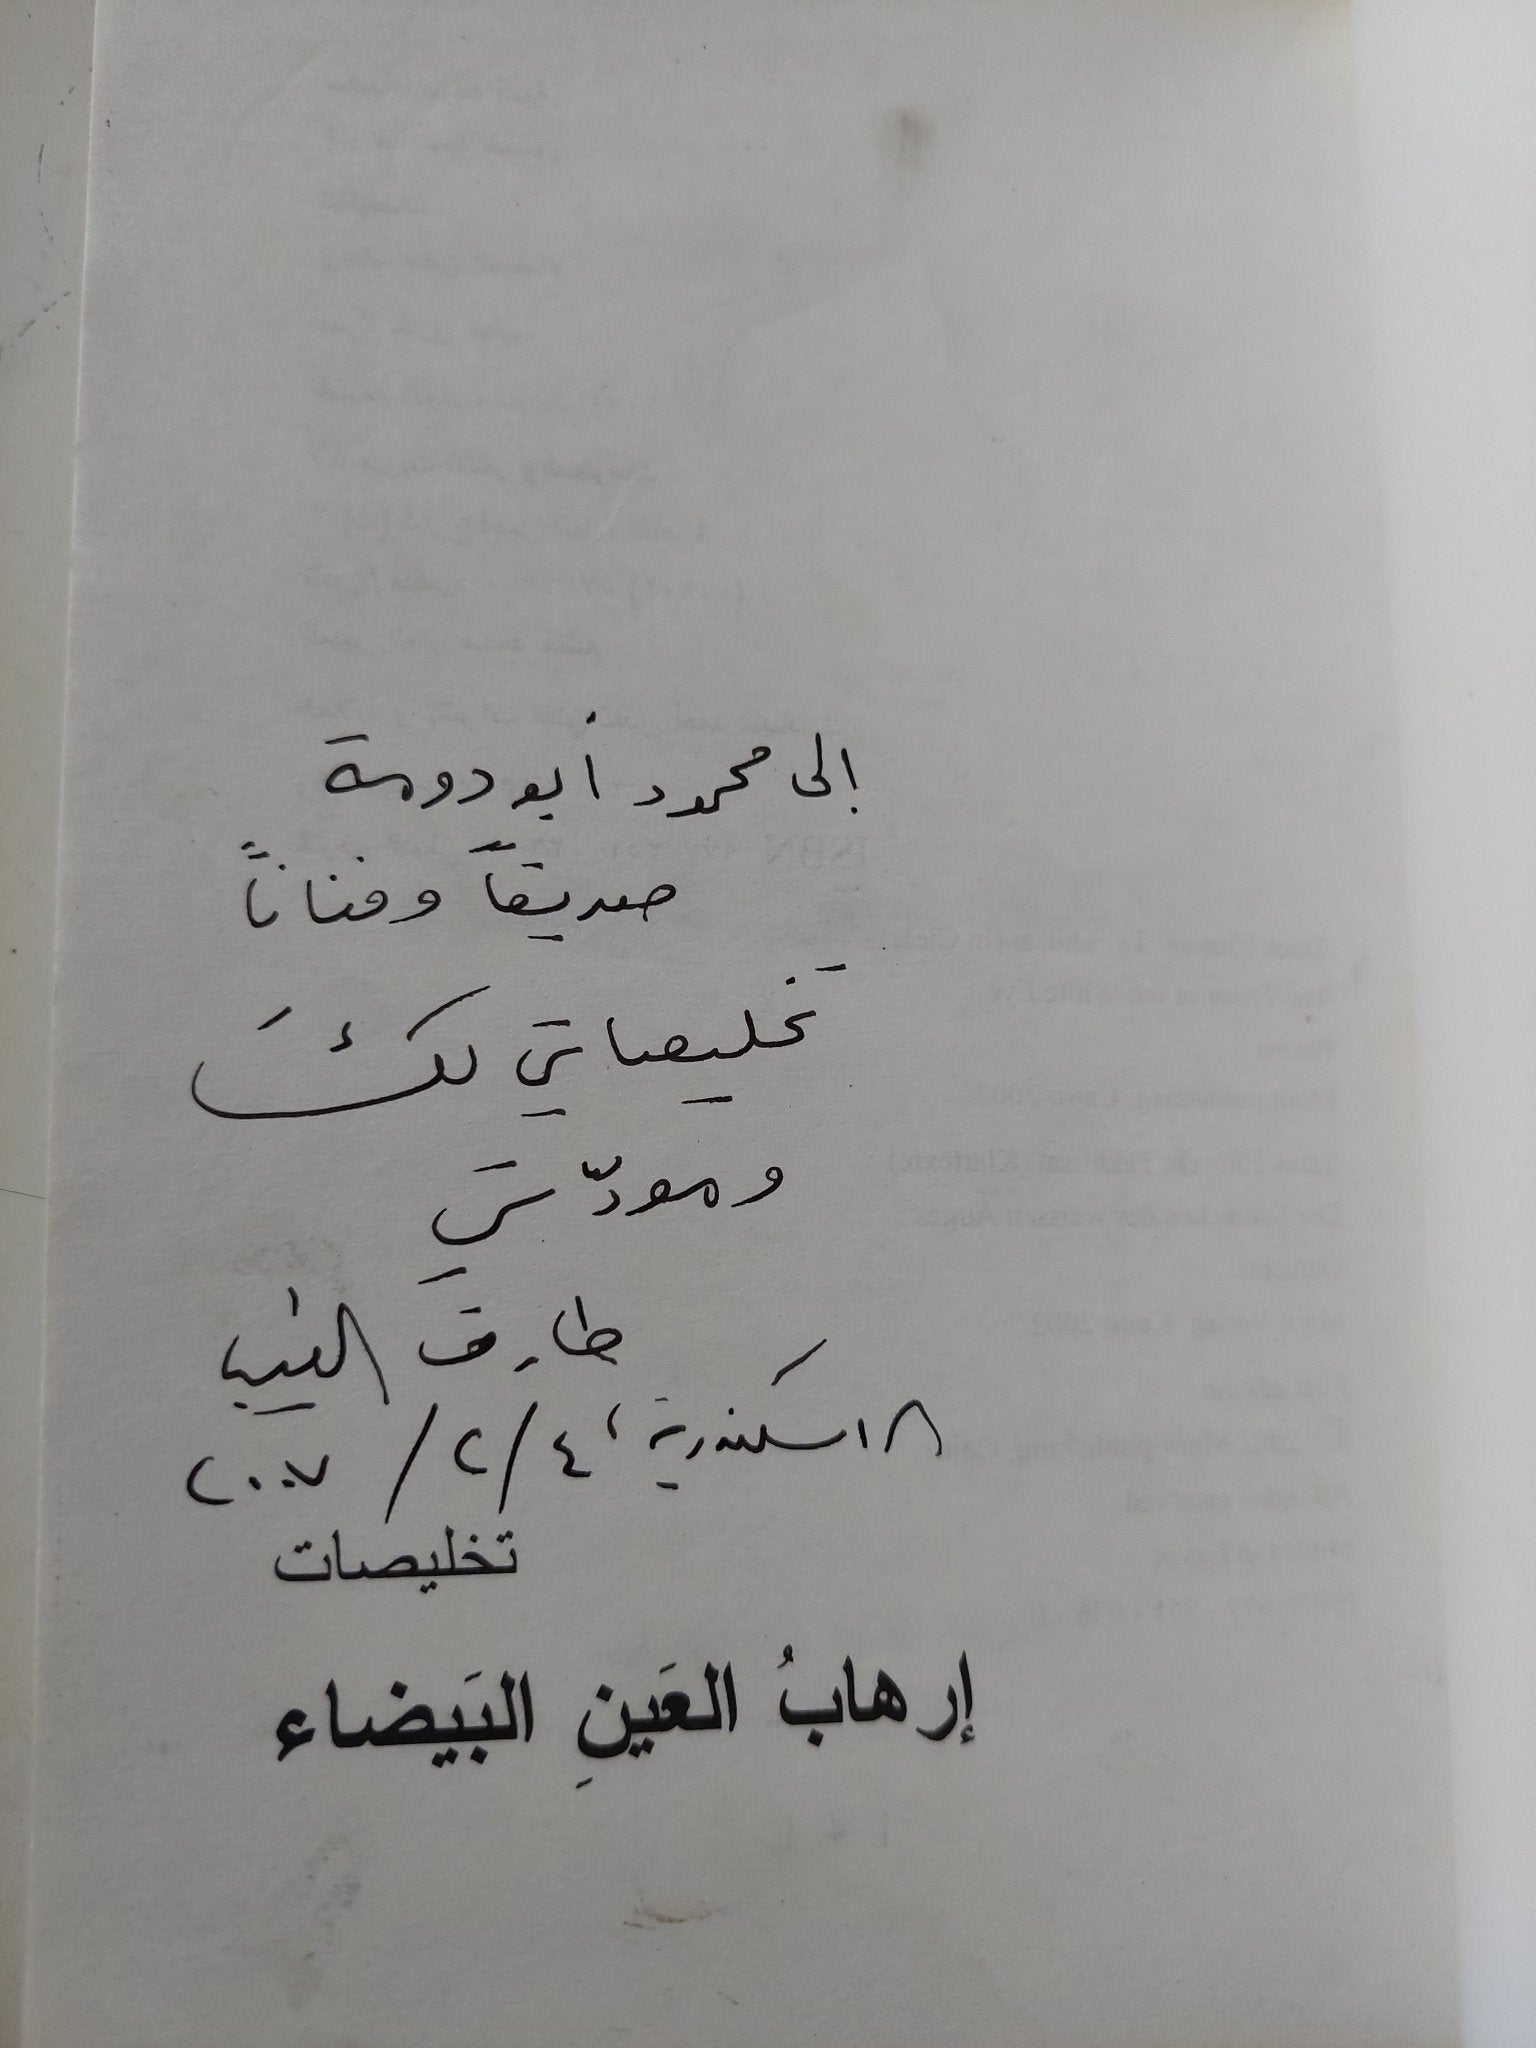 إلى محمود أبو دومة
صديقاً وفناناً
تخليصاتي لكَ
ومودّتي
طارق الطيب
الاسكندرية، ٤/٢/٢٠٠٧
تخليصات
إرهابُ العَينِ البَيضاء